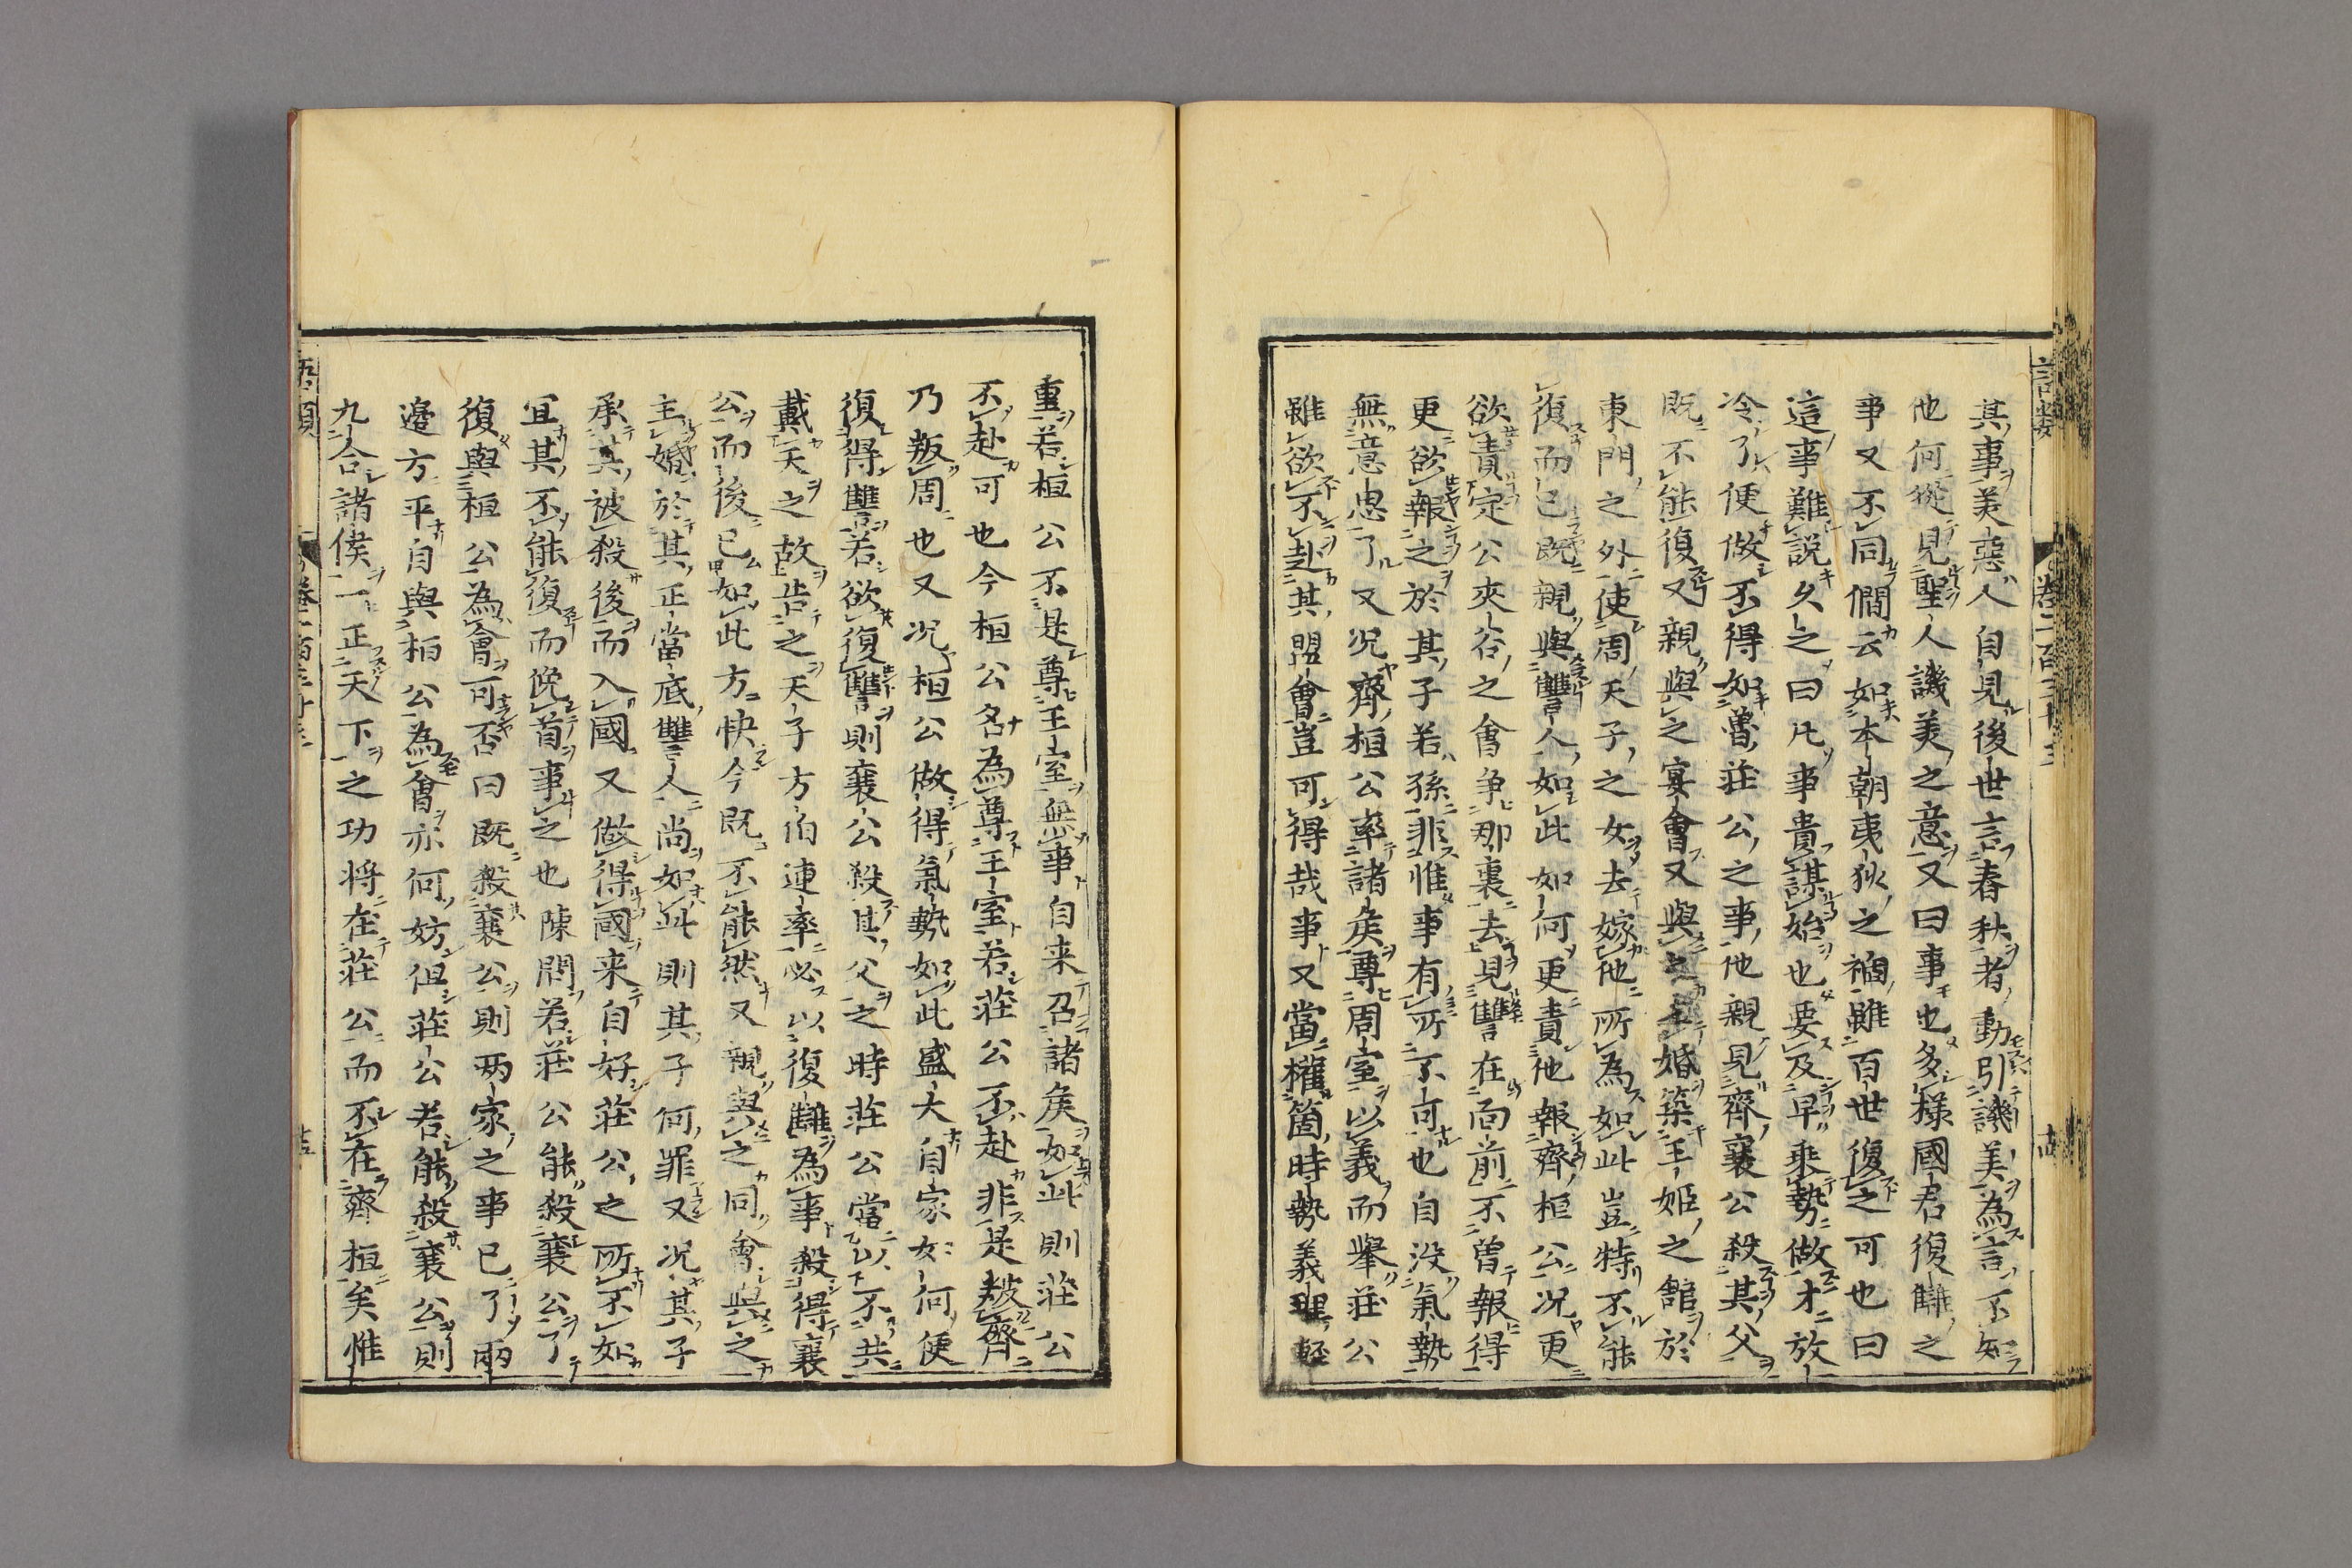 其事美惡人自見後世言春秋者動引譏美為言不知
他何從見聖人譏美之意又曰事也多樣國君復讎之
事又不同僩云如本朝夷狄之禍雖百世復之可也曰
這事難說久之曰凡事貴謀始也要及早乘勢做才放
冷了便做不得如魯莊公之事他親見齊襄公殺其父
既不能復又親與之宴會又與之主婚築王姬之館於
東門之外使周天子之女去嫁他所為如此豈特不能
復而已既親與讐人如此如何更責他報齊桓公况更
欲責定公夾谷之會争那裏去見讐在面前不曽報得
更欲報之於其子若孫非惟事有所不可也自没氣勢
無意思了又况齊桓公率諸侯尊周室以義而舉莊公
雖欲不赴其盟會豈可得哉事又當權箇時勢義理輕
重若桓公不是尊王室無事自来召諸侯如此則莊公
不赴可也今桓公名為尊王室若莊公不赴非是叛齊
乃叛周也又况桓公做得氣勢如此盛大自家如何便
復得讐若欲復讐則襄公殺其父之時莊公當以不共
戴天之故告之天子方伯連率必以復讎為事殺得襄
公而後已如此方快今既不能然又親與之同會與之
主婚於其正當底讐人尚如此則其子何罪又况其子
承其被殺後而入國又做得國来自好莊公之所不如
宜其不能復而俛首事之也陳問若莊公能殺襄公了
復與桓公為會可否曰既殺襄公則兩家之事已了兩
邊方平自與桓公為會亦何妨但莊公若能殺襄公則
九合諸侯一正天下之功将在莊公而不在齊桓矣惟